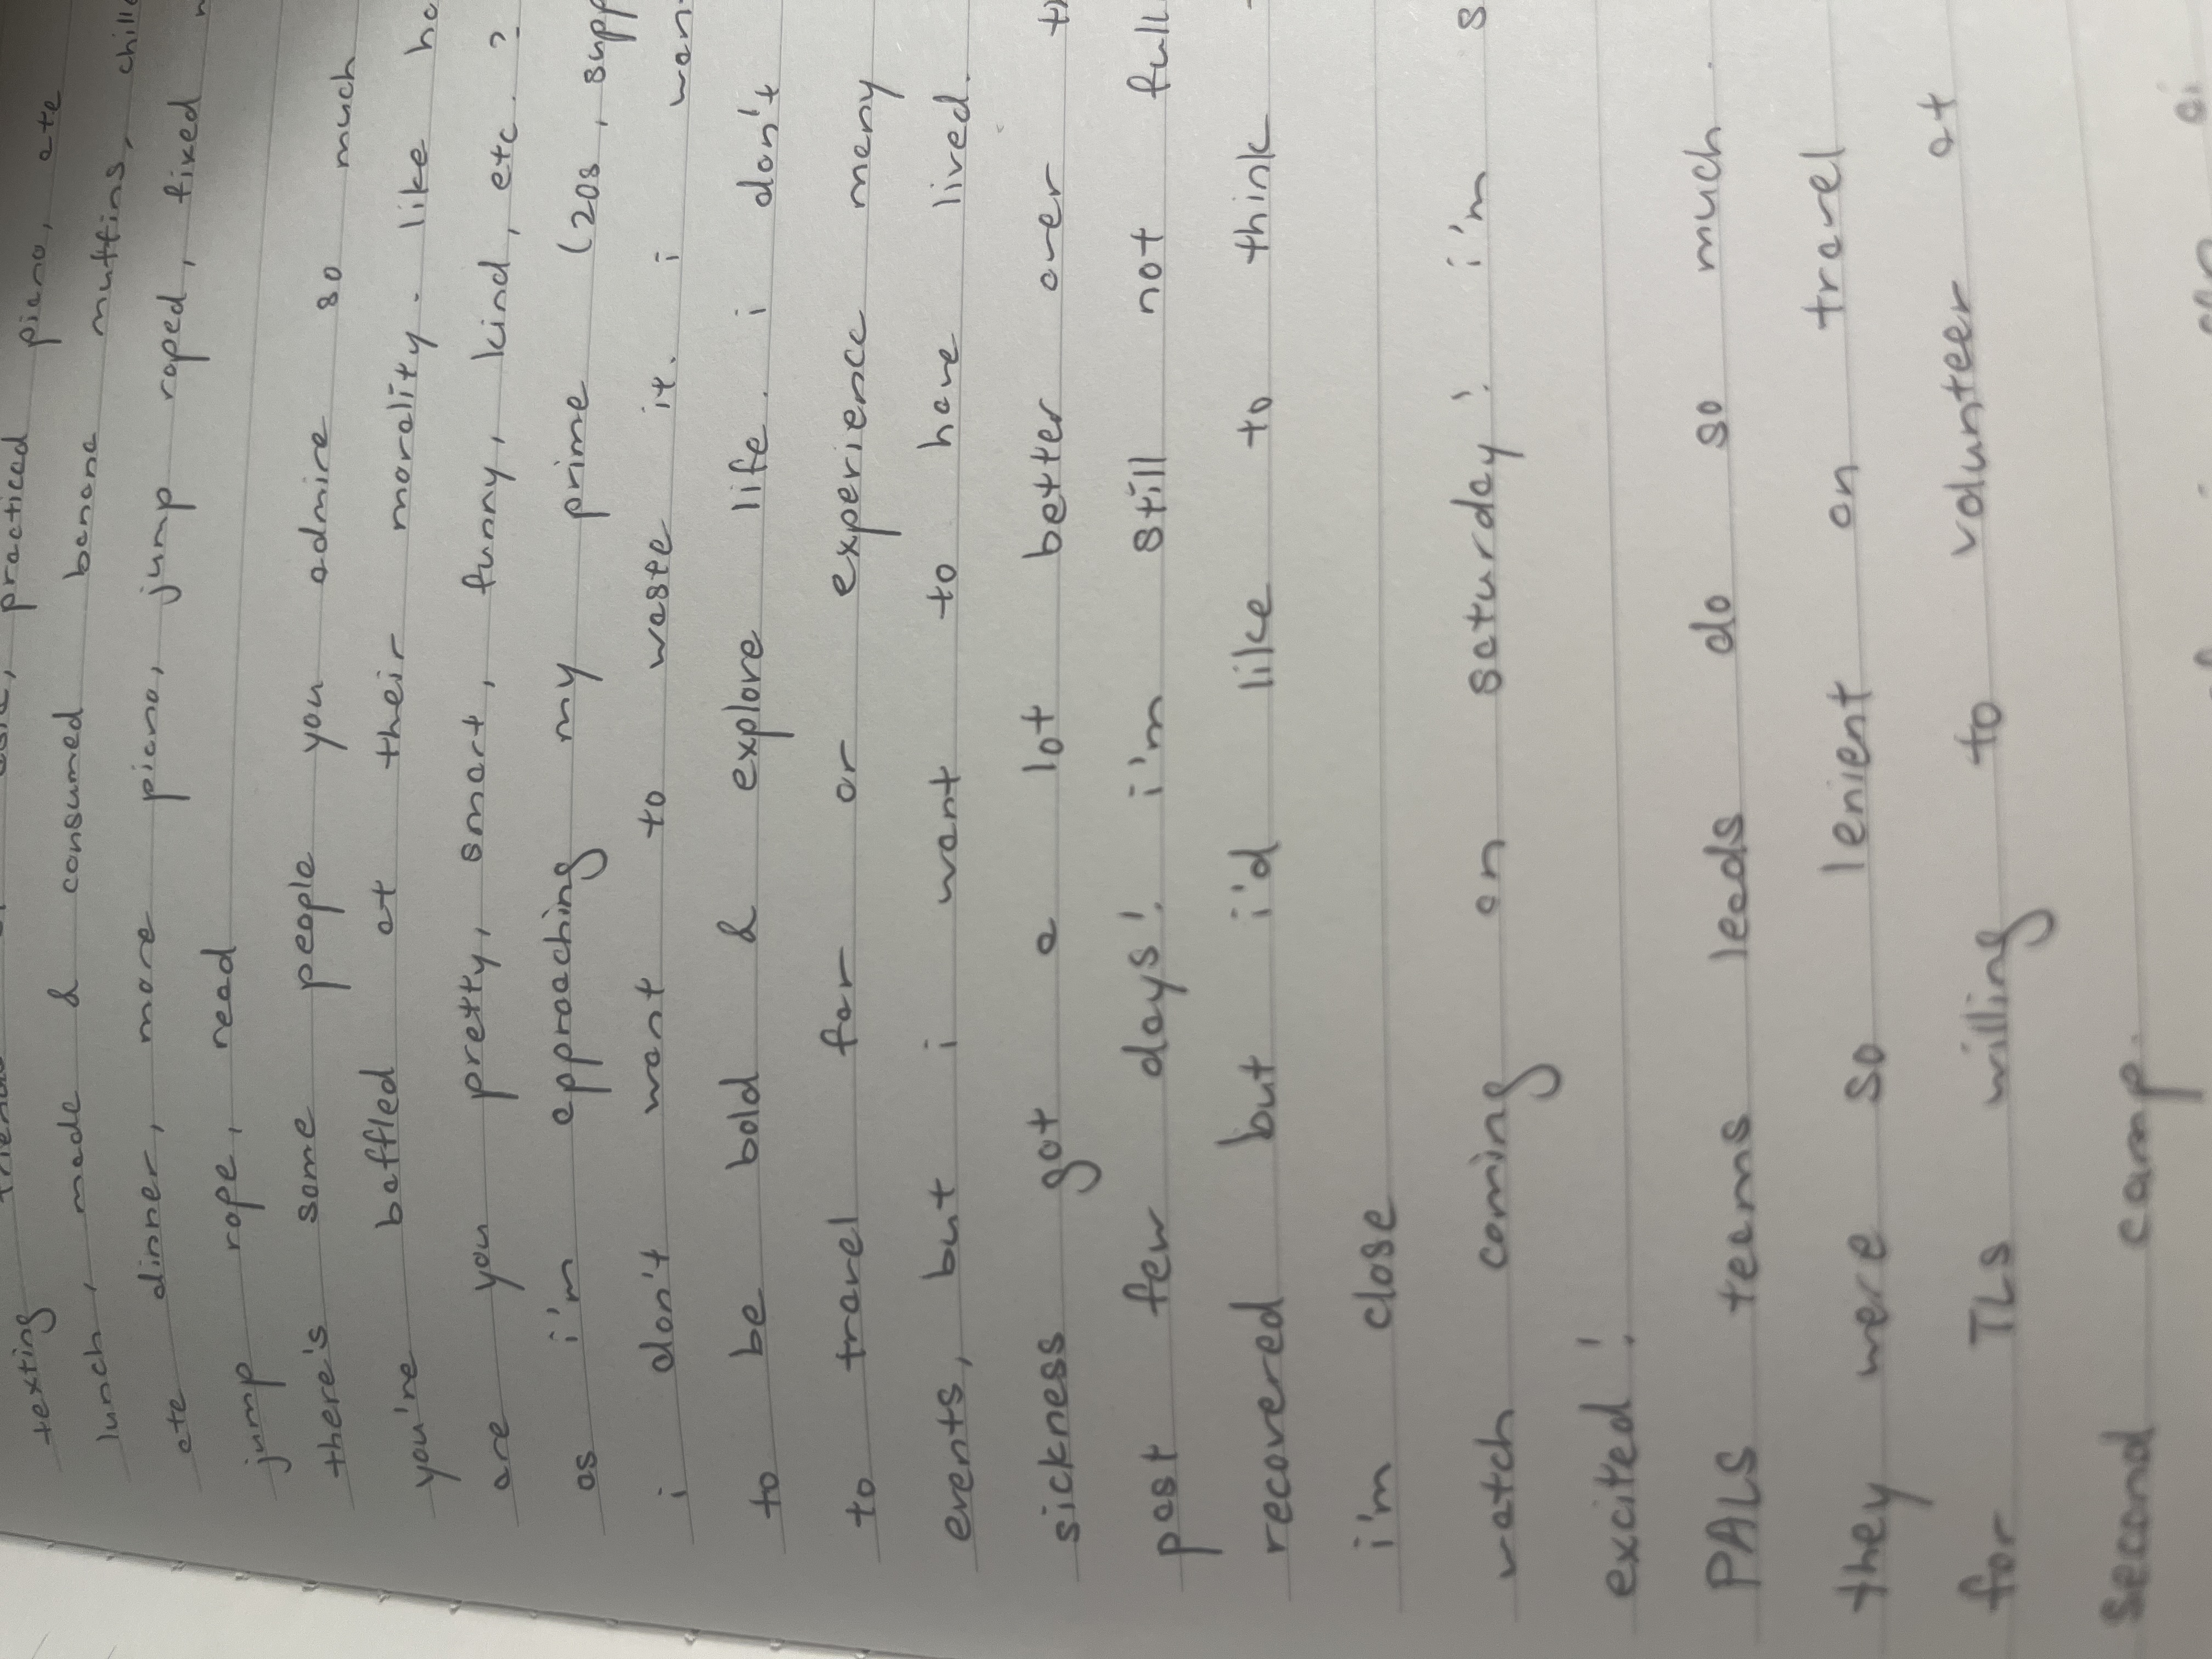 practiced piano, ate
texting
lunch, made & consumed banana muffins,
ate dinner, more piano, jump roped, fixed
jump rope, read
there's some people you admire so much
you're baffled at their morality. like
are you pretty, smart, funny, kind, etc.?
as i'm approaching my prime (20s,
i don't want to waste it. i
to be bold & explore life. i don't
to travel far or experience many
events, but i want to have lived.
sickness got a lot better over
past few days! i'm still not
recovered but i'd like to think
i'm close
watch coming on saturday! i'm
excited!
PALS teams leads do so much.
they were so lenient on travel
for TLs willing to volunteer at
second camp.